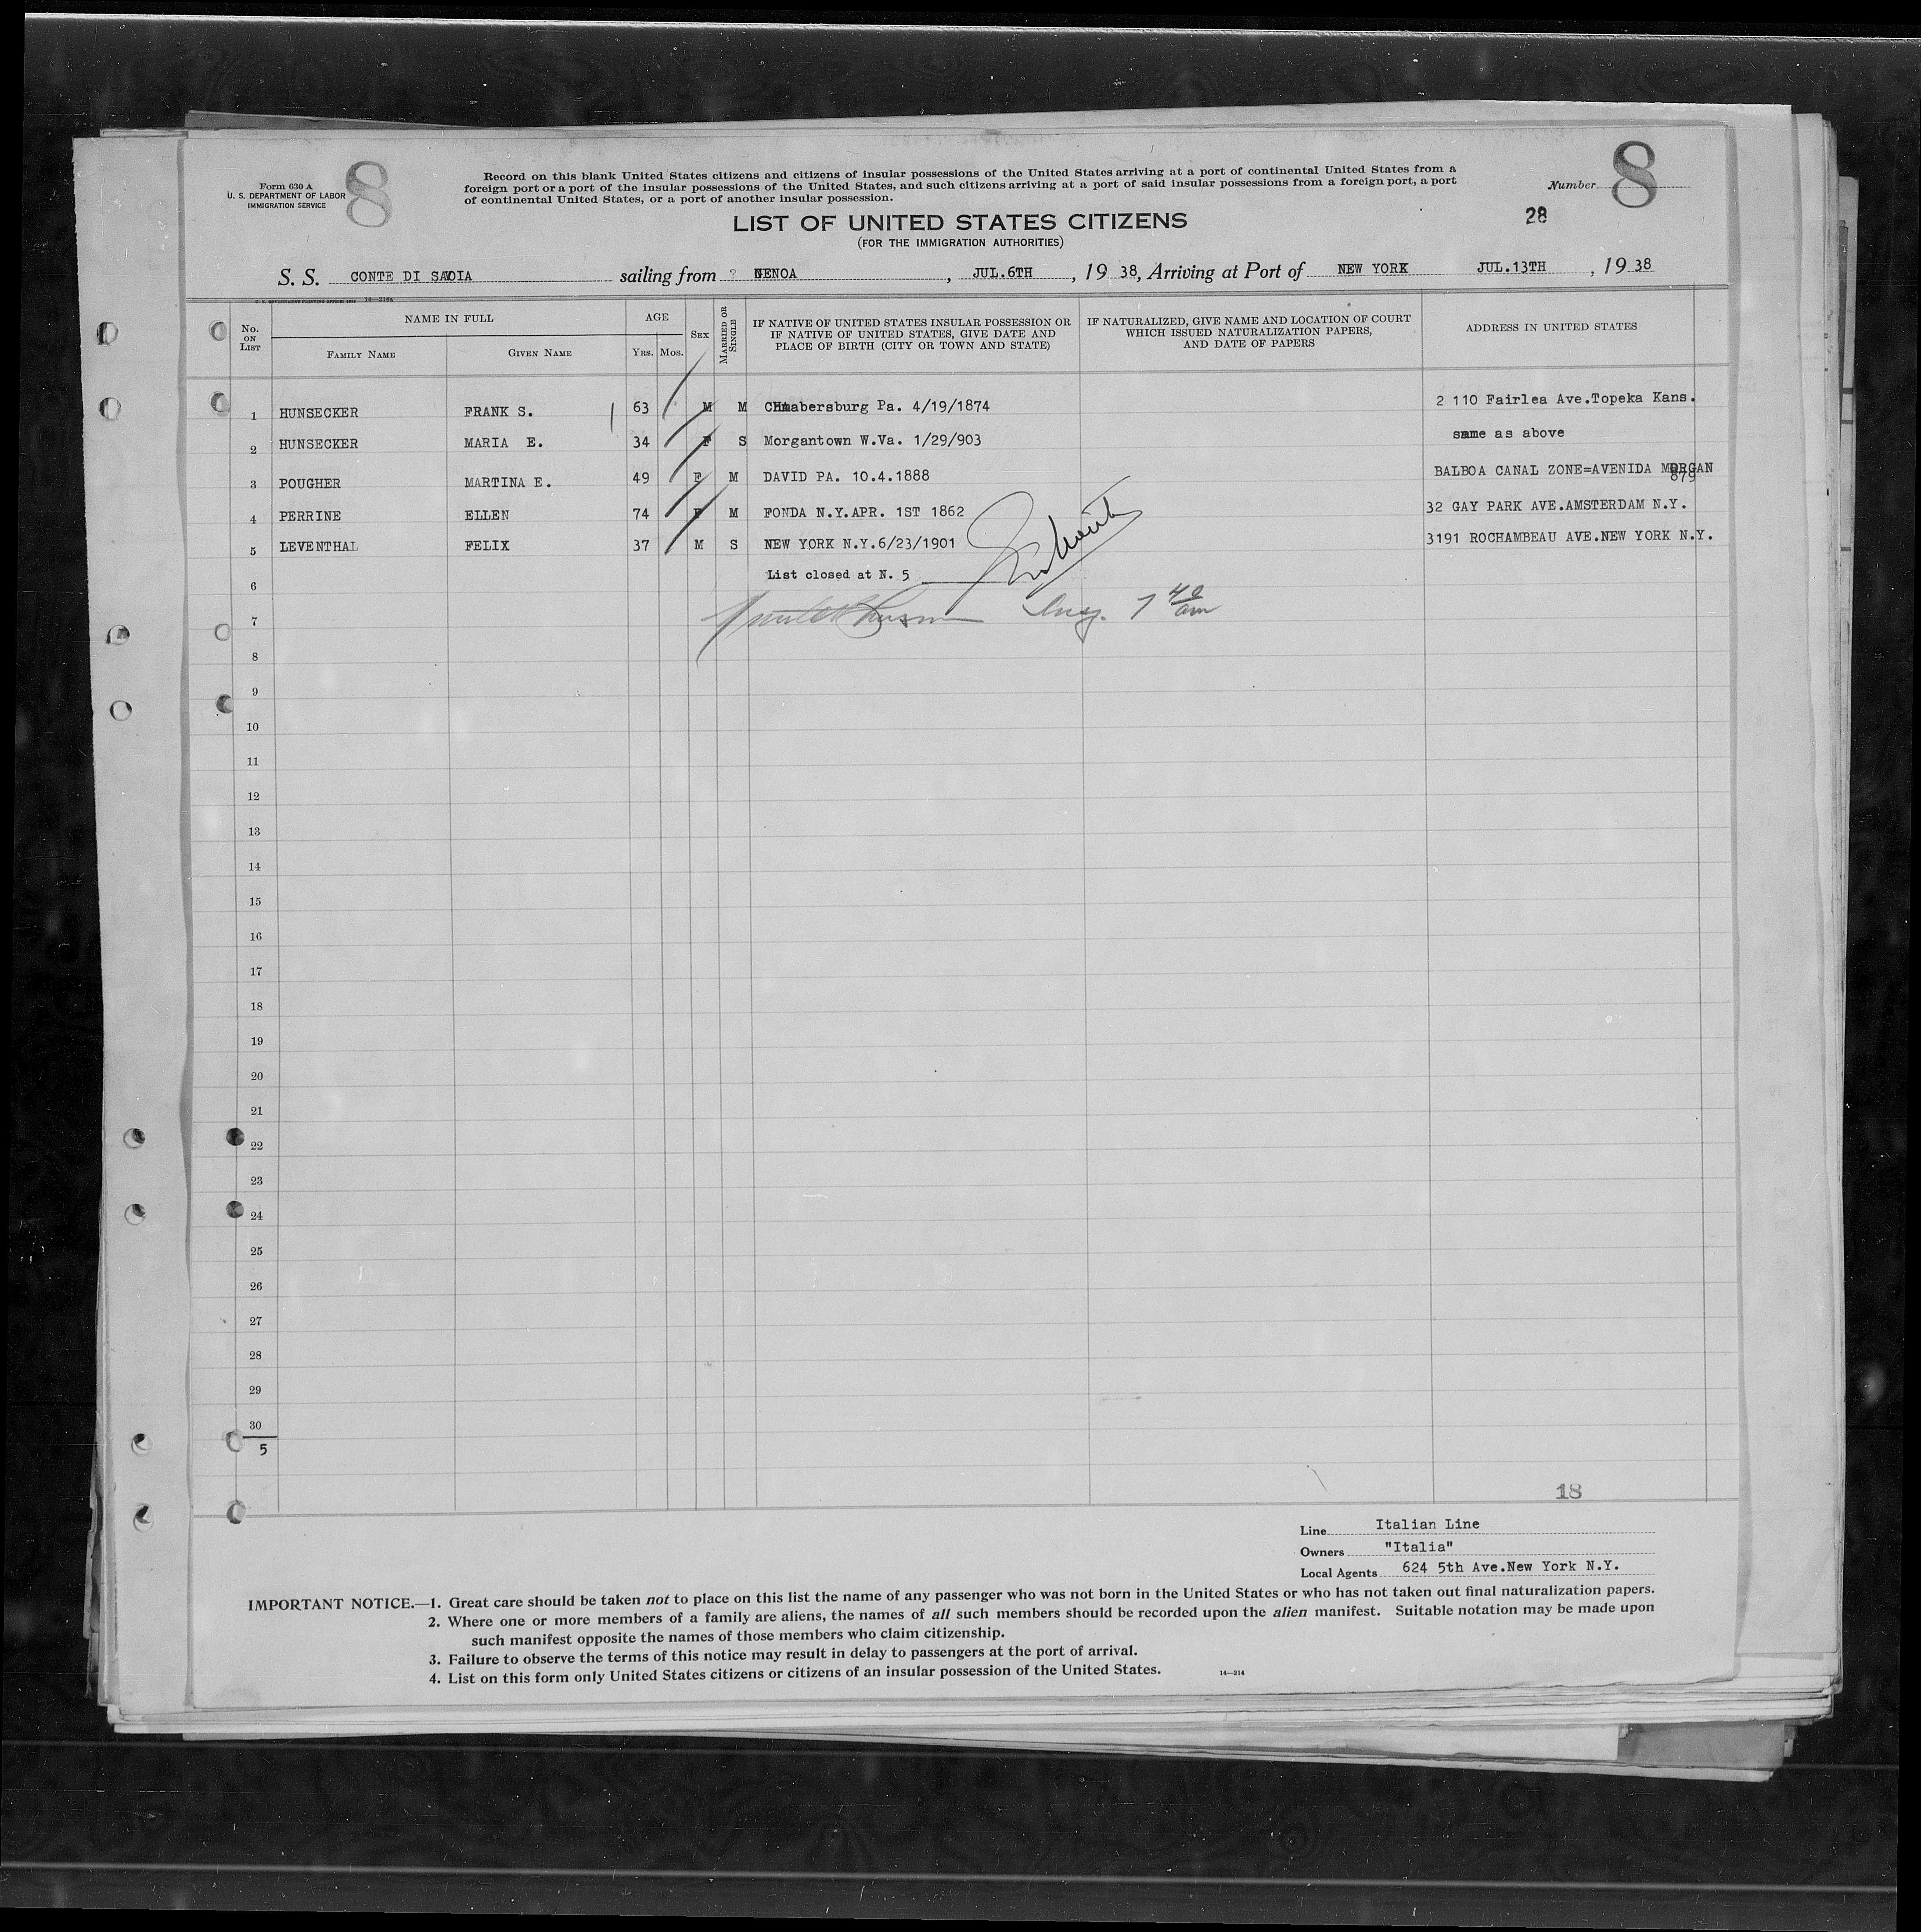 8
Form 630 A
U. S. DEPARTMENT OF LABOR
IMMIGRATION SERVICE
Record on this blank United States citizens and citizens of insular possessions of the United States arriving at a port of continental United States from a
foreign port or a port of the insular possessions of the United States, and such citizens arriving at a port of said insular possessions from a foreign port, a port
of continental United States, or a port of another insular possession.
Number 8
28
LIST OF UNITED STATES CITIZENS
(FOR THE IMMIGRATION AUTHORITIES)
S. S. CONTE DI SAVOIA sailing from GENOA, JUL.6TH, 1938, Arriving at Port of NEW YORK JUL.13TH, 1938
No. ON LIST
NAME IN FULL
FAMILY NAME GIVEN NAME
AGE
YRS. MOS.
SEX
MARRIED OR SINGLE
IF NATIVE OF UNITED STATES INSULAR POSSESSION OR
IF NATIVE OF UNITED STATES, GIVE DATE AND
PLACE OF BIRTH (CITY OR TOWN AND STATE)
IF NATURALIZED, GIVE NAME AND LOCATION OF COURT
WHICH ISSUED NATURALIZATION PAPERS,
AND DATE OF PAPERS
ADDRESS IN UNITED STATES
1 HUNSECKER FRANK S. 63 M M Chmabersburg Pa. 4/19/1874 2 110 Fairlea Ave.Topeka Kans.
2 HUNSECKER MARIA E. 34 F S Morgantown W.Va. 1/29/903 same as above
3 POUGHER MARTINA E. 49 F M DAVID PA. 10.4.1888 BALBOA CANAL ZONE=AVENIDA MORGAN
879
4 PERRINE ELLEN 74 F M FONDA N.Y.APR. 1ST 1862 32 GAY PARK AVE.AMSTERDAM N.Y.
5 LEVENTHAL FELIX 37 M S NEW YORK N.Y.6/23/1901 3191 ROCHAMBEAU AVE.NEW YORK N.Y.
6 List closed at N. 5
7 Insp. 7 40 am
8
9
10
11
12
13
14
15
16
17
18
19
20
21
22
23
24
25
26
27
28
29
30
5
18
Line Italian Line
Owners "Italia"
Local Agents 624 5th Ave.New York N.Y.
IMPORTANT NOTICE.—1. Great care should be taken not to place on this list the name of any passenger who was not born in the United States or who has not taken out final naturalization papers.
2. Where one or more members of a family are aliens, the names of all such members should be recorded upon the alien manifest. Suitable notation may be made upon
such manifest opposite the names of those members who claim citizenship.
3. Failure to observe the terms of this notice may result in delay to passengers at the port of arrival.
4. List on this form only United States citizens or citizens of an insular possession of the United States.
14—214